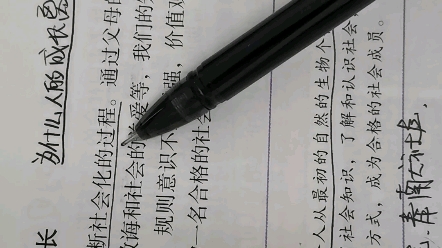 长
为什么人的成长是
断社会化的过程。通过父母的
教诲和社会的 爱等，我们的
规则意识不 强，价值观
一名合格的社会
人从最初的自然的生物个
社会知识，了解和认识社会
方式，成为合格的社会成员。